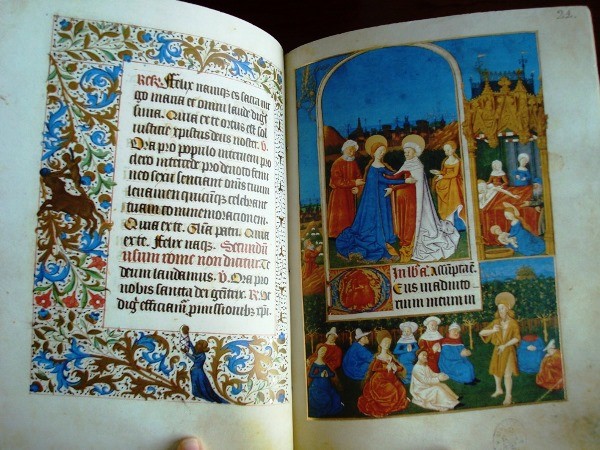 Felix namq; es sacra vir
go maria et omni laude
sima. Quia ex te ortus est sol
iusticie xpistus deus noster. V.
Ora pro populo interveni pro
clero intercede pro devoto femi
neo sexu senciant oms tuum
levamen quicuq; celebrant
tuam comemoracionem.
Quia ex te. Glia patri. Quia
ex te. Felix namq;. Secundu
usum rome non dicatur Te
deum laudamus. V. Ora pro
nobis sancta dei genitrix. R. Ut
digni efficiam pmissionibus xpi.
21.
Deus in adiuto
rium meum in